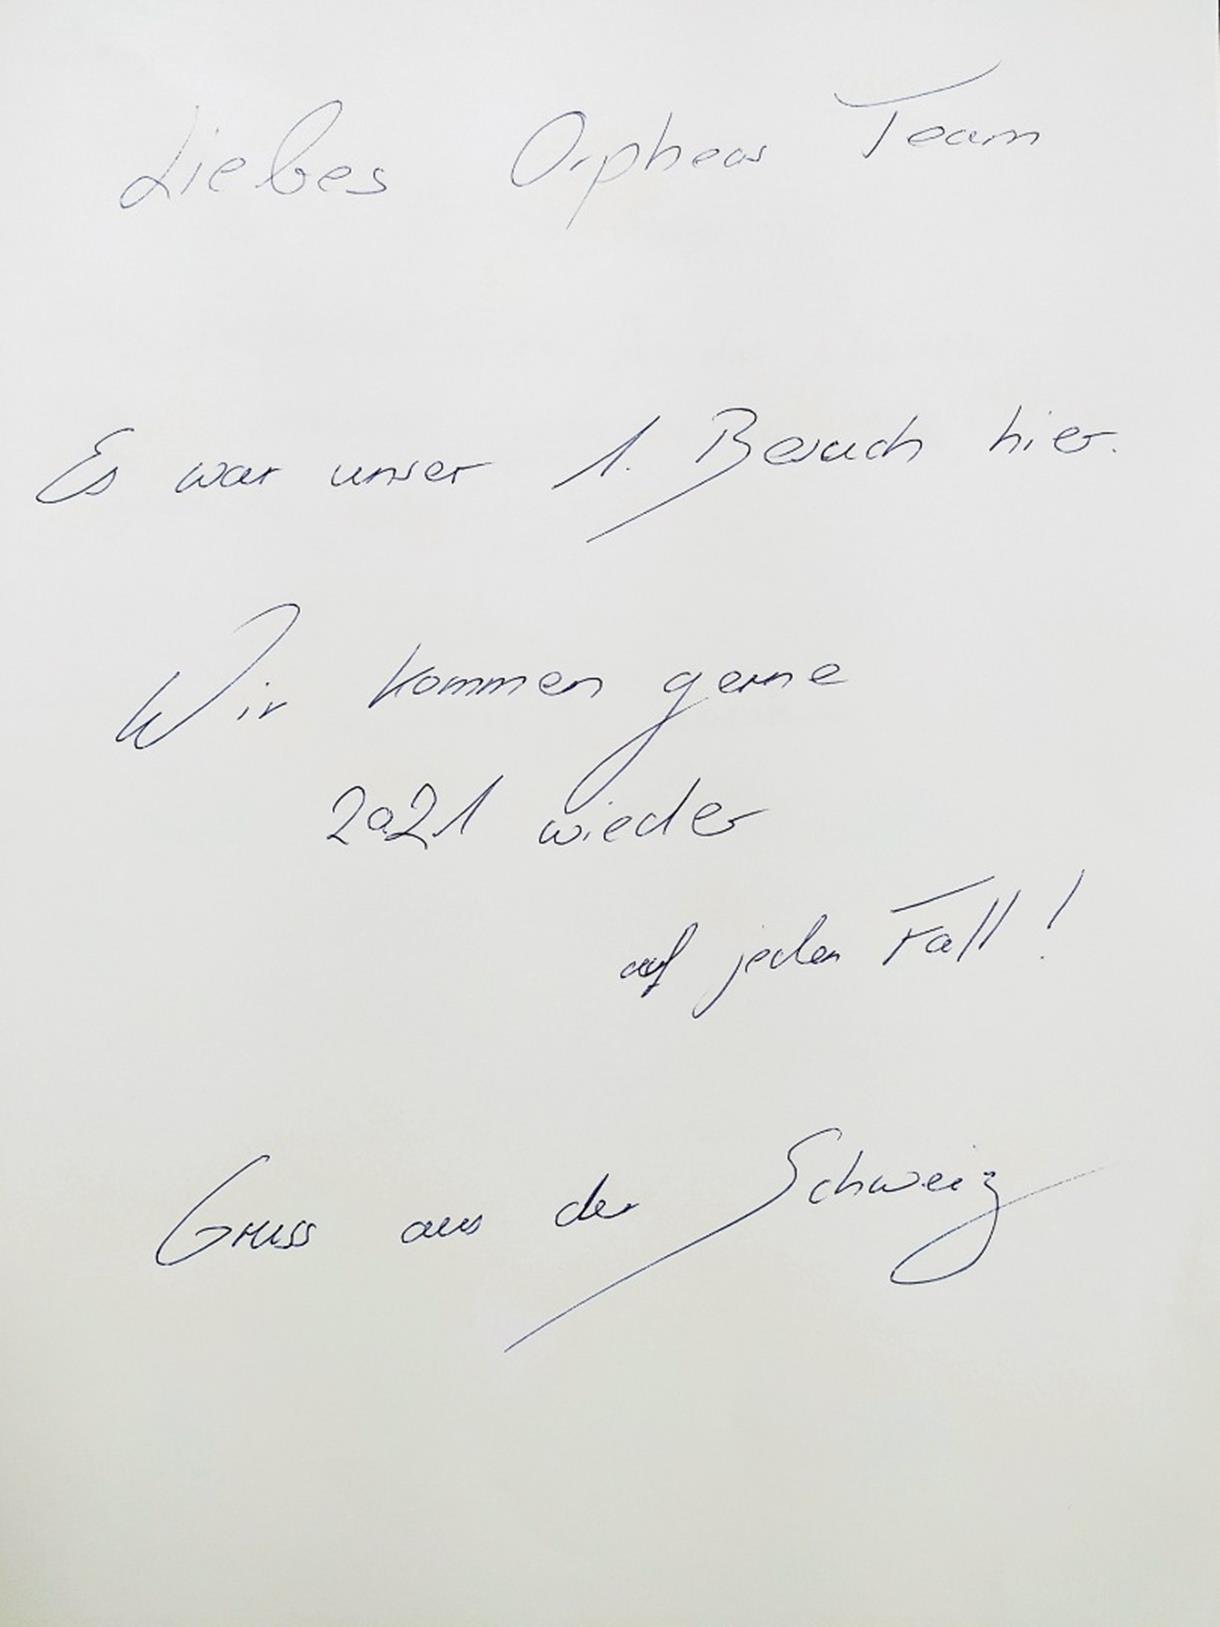 Liebes Orpheas Team
Es war unser 1. Besuch hier.
Wir kommen gerne
2021 wieder
auf jeden Fall!
Gruss aus der Schweiz